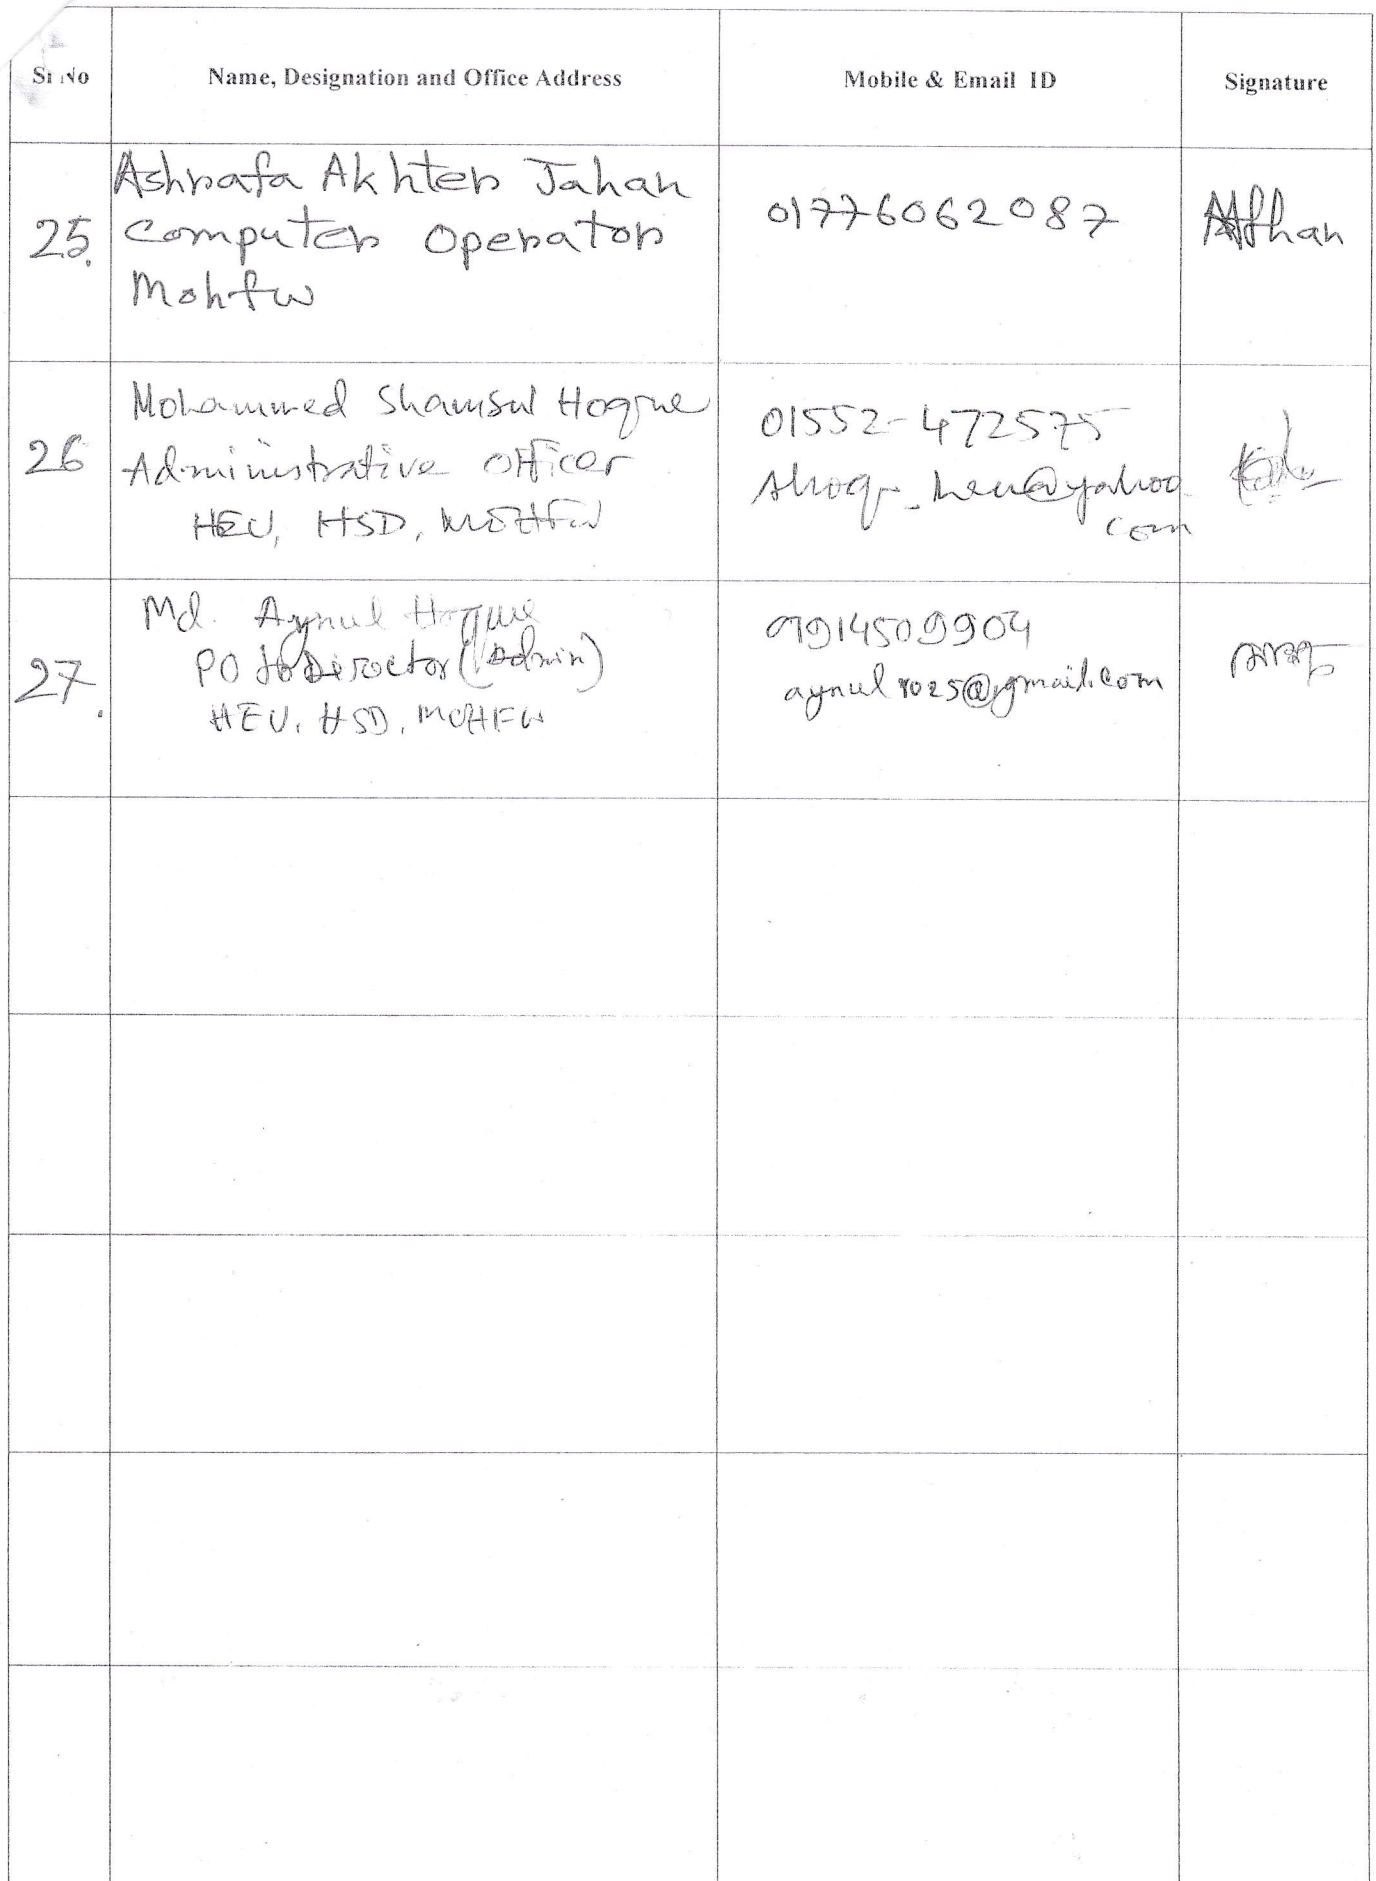 Sr No
Name, Designation and Office Address
Mobile & Email ID
Signature
25.
Ashrafa Akhter Jahan
Computer Operator
Mohfw
01776062087
26
Mohammed Shamsul Hoque
Administrative Officer
HEU, HSD, MOHFW
01552-472575
@yahoo
com
27.
Md. Aynul Hoque
PO to Director (Admin)
HEU, HSD, MOHFW
aynul1025@gmail.com